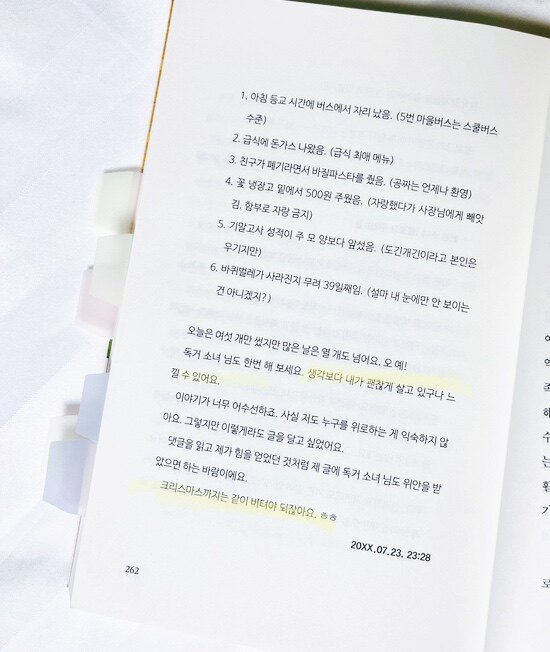 1. 아침 등교 시간에 버스에서 자리 났음. (5번 마을버스는 스쿨버스
수준)
2. 급식에 돈가스 나왔음. (급식 최애 메뉴)
3. 친구가 폐기라면서 바질파스타를 줬음. (공짜는 언제나 환영)
4. 꽃 냉장고 밑에서 500원 주웠음. (자랑했다가 사장님에게 빼앗
김. 함부로 자랑 금지)
5. 기말고사 성적이 주 모 양보다 앞섰음. (도긴개긴이라고 본인은
우기지만)
6. 바퀴벌레가 사라진지 무려 39일째임. (설마 내 눈에만 안 보이는
건 아니겠지?)
오늘은 여섯 개만 썼지만 많은 날은 열 개도 넘어요. 오 예!
독거 소녀 님도 한번 해 보세요. 생각보다 내가 괜찮게 살고 있구나 느
낄 수 있어요.
이야기가 너무 어수선하죠. 사실 저도 누구를 위로하는 게 익숙하지 않
아요. 그렇지만 이렇게라도 글을 달고 싶었어요.
댓글을 읽고 제가 힘을 얻었던 것처럼 제 글에 독거 소녀 님도 위안을 받
았으면 하는 바람이에요.
크리스마스까지는 같이 버텨야 되잖아요. ㅎㅎ
20XX.07.23. 23:28
262